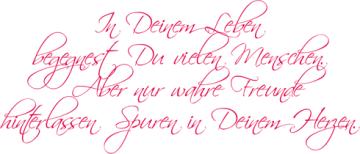 In Deinem Leben
begegnest Du vielen Menschen.
Aber nur wahre Freunde
hinterlassen Spuren in Deinem Herzen.